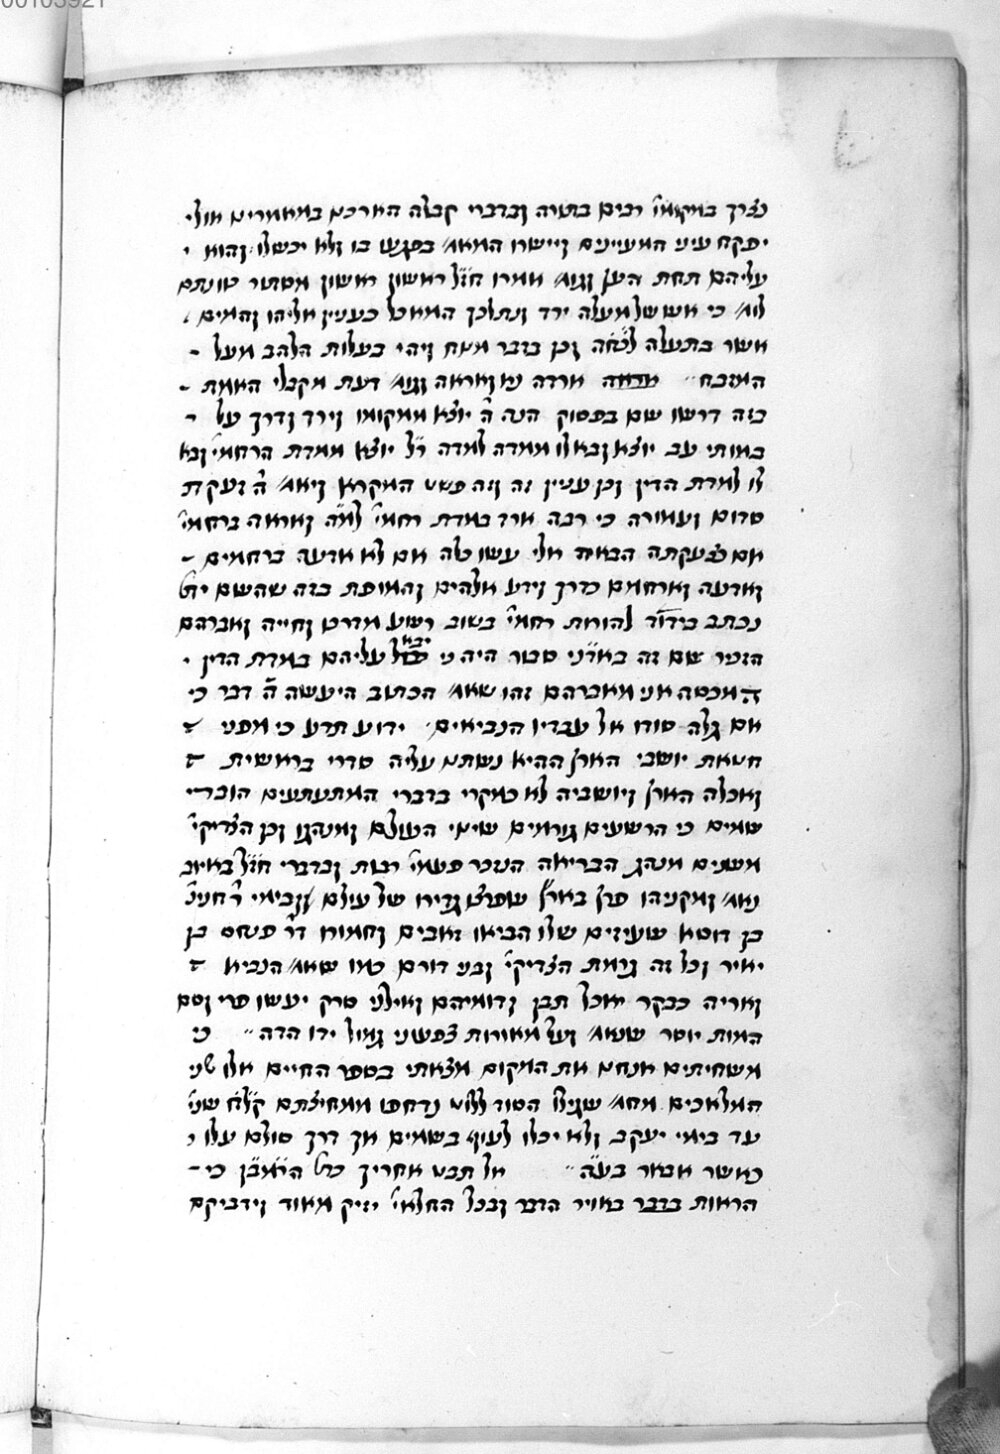 00103921
נצרך במקומו' רבים בתורה ובדברי קבלה הארכתי במאמרים אולי
יפקח עיני המעיינים ויישרו המאמ' בפגש בו ולא יכשלו והוא
עליהם תחת העץ וגומ' אמרו חז"ל ראשון ראשון מסתר כונתם
לומ' כי אש של מעלה ירד ונתלכך המאכל כענין אליהו והמים
אשר בתעלה לחכה וכן בדבר מנוח ויהי בעלות הלהב מעל
המזבח ארדה נא ואראה וגומ' דעת מקבלי האמת
בזה דרשו שם בפסוק הנה ה' יוצא ממקומו וירד ודרך על
במותי עב יוצא ובא לו ממדה למדה ר"ל יוצא ממדת הרחמי' ובא
לו למדת הדין וכן עניין זה וזה פשט המקרא ויאמ' ה' זעקת
סדום ועמורה כי רבה ארד במדת רחמי' למ"ה ואראה ברחמי'
אם כצעקתה הבאה אלי עשו כלה אם לא אדעה ברחמים
ואדעה וארחמם כדרך וידע אלהים והמופת בזה שהשם ית'
נכתב ביו"ד להורות רחמי' בשוב רשע מדרכו וחייה ואברהם
הזכיר שם זה באדני סבור היה כי יבא עליהם במדת הדין
המכסה אני מאברהם זהו שאמ' הכתוב היעשה ה' דבר כי
אם גלה סודו אל עבדיו הנביאים ידוע תדע כי מפני
חטאת יושבי הארץ ההיא נשתנו עליה סדרי בראשית
ואכלה הארץ ויושביה לא כמקרי בדברי המתעתעים הוברי
שמים כי הרשעים גורמים שינוי העולם ומנהגו וכן הצדיקי'
משנים מנהג הבריאה הנזכר פעמי' רבות ובדברי חז"ל באיוב
נאמ' ומקניהו פרץ בארץ שפרצו גדירו של עולם ובימי ר' חנינ'
בן דוסא שעיזים שלו הביאו זאבים וחמורו דר' פנחס בן
יאיר וכל זה גרמת הצדיקי' ובני דורם כמו שאמ' הנביא
ואריה כבקר יאכל תבן ודומיהם ואילני סרק יעשו פרי וסם
המות יוסר שנאמ' ועל מאורות צפעוני גמול ידו הדה כי
משחיתים אנחנו את המקום מצאתי בספר החיים אלו שני
המלאכים מחמ' שגילו הסוד ללוט נדחפו ממחיצתם קל"ח שני'
עד בימי יעקב ולא יכלו לעוף בשמים אך דרך סולם עלו
כאשר אבאר בע"ה אל תבט אחריך כת' הרמב"ן כי
הראות בדבר באויר הדבר ובכל החלאי' יזיק מאוד וידביקם